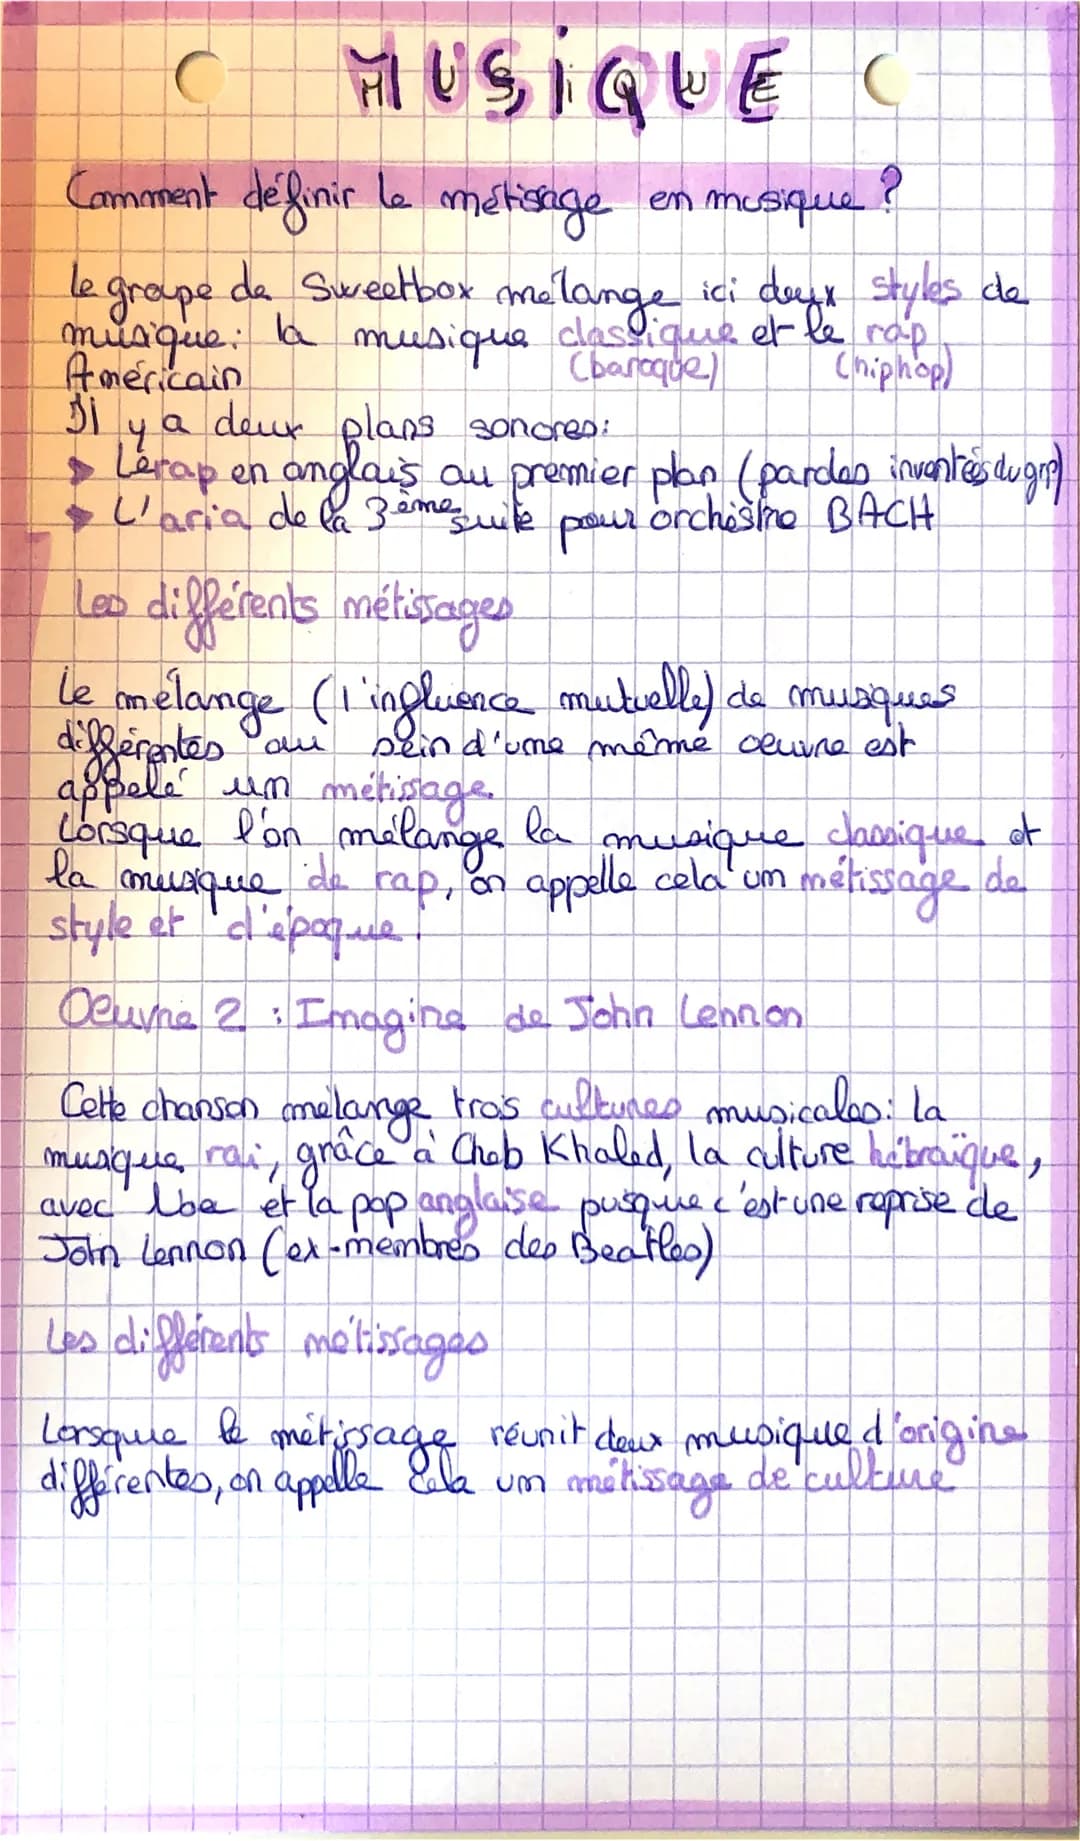 MUSiQUE
Comment définir le métisage en musique ?
Le groupe de Sweetbox mélange ici deux styles de
musique: la musique classique et le rap
(baroque) (hiphop)
Américain
Il y a deux plans sonores:
Le rap en anglais au premier plan (paroles inventées du grp)
L'aria de la 3ème suite pour orchestre BACH
Les différents métissages
Le mélange (l'influence mutuelle) de musiques
différentes au sein d'une même oeuvre est
appelé un métissage.
Lorsque l'on mélange la musique classique et
la musique de rap, on appelle cela un métissage de
style et d'époque.
Oeuvre 2 : Imagine de John Lennon
Cette chanson mélange trois cultures musicales: la
musique rai, grâce à Cheb Khaled, la culture hébraïque,
avec et la pop anglaise puisque c'est une reprise de
John Lennon (ex-membres des Beatles)
Les différents métissages
Lorsque le métissage réunit deux musique d'origine
différentes, on appelle cela un métissage de culture